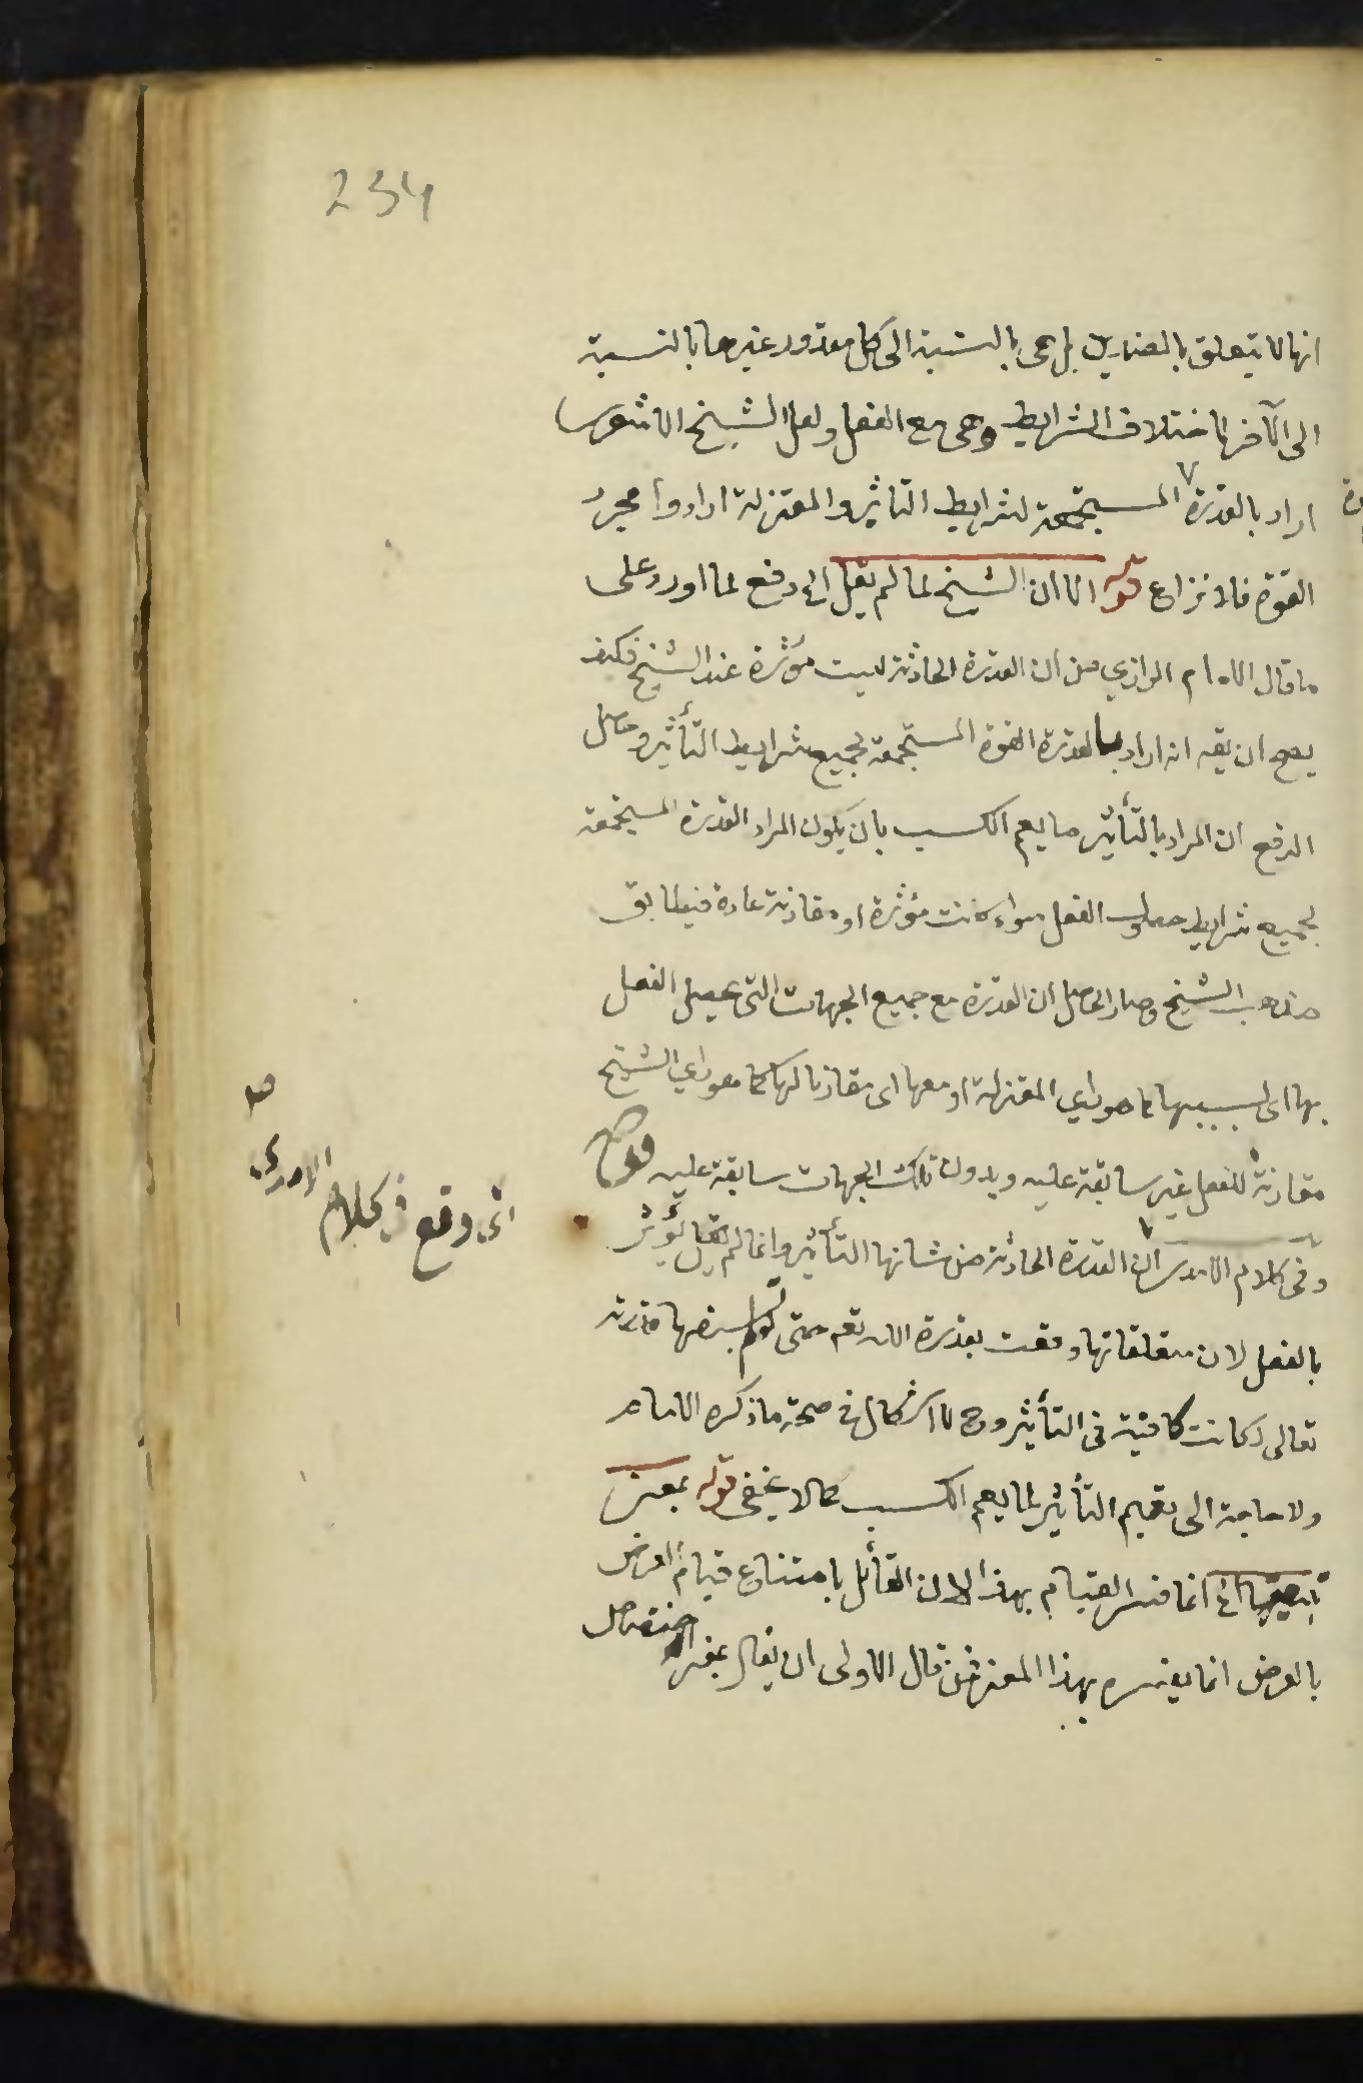 234
انها لا يتعلق بالضدين بل هى بالنسبة الى كل مقدور غيرها بالنسبة
الى الآخر لاختلاف الشرايط وهى مع الفعل ولعل الشيخ الاشعرى
اراد بالقدرة المستجمعة لشرايط التاثير والمعتزلة ارادوا مجرد
القوة فلا نزاع قوله الا ان الشيخ لما لم يقل الخ دفع لما اورد على
ما قال الامام الرازي من ان القدرة الحادثة ليست مؤثرة عند الشيخ فكيف
يصح ان يقه انه اراد بالقدرة القوة المستجمعة لجميع شرايط التأثير وحاصل
الدفع ان المراد بالتأثير ما يعم الكسب بان يكون المراد القدرة المستجمعة
لجميع شرايط حصول الفعل سواء كانت مؤثرة او مقارنة عادة فيطابق
مذهب الشيخ وصار الحاصل ان القدرة مع جميع الجهات التى يحصل الفعل
بها اى بسببها كما هو راي المعتزلة او معها اى مقارنا لها كما هو راي الشيخ
مقارنة للفعل غير سابقة عليه وبدون تلك الجهات سابقة عليه
وفى كلام الآمدى ان القدرة الحادثة من شانها التأثير وانما لم يؤثر
بالفعل لان متعلقاتها وقعت بقدرة الله تعم حتى لو لم
تعالى لكانت كافية فى التأثير وح لا اشكال فى صحة ما ذكره الامام
ولا حاجة الى تعميم التأثير لما يعم الكسب كما لا يخفى قوله بمعنى
انما فسر القيام بهذا لان القائل بامتناع قيام العرض
بالعرض انما يفسره بهذا المعنى قال الاولى ان يقال بمعنى
اى وقع فى كلام
الامدى